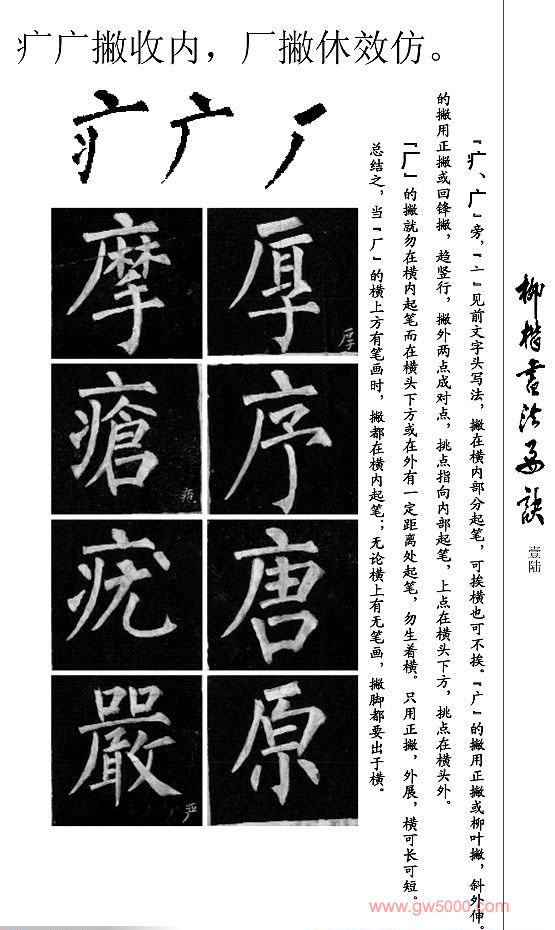 疒广撇收内，厂撇休效仿。
疒广厂
柳楷書法要訣
壹陆
“疒、广”旁，“亠”见前文字头写法，撇在横内部分起笔，可挨横也可不挨。“广”的撇用正撇或柳叶撇，斜外伸。“疒”
的撇用正撇或回锋撇，趋竖行，撇外两点成对点，挑点指向内部起笔，上点在横头下方，挑点在横头外。
“厂”的撇就勿在横内起笔而在横头下方或在外有一定距离处起笔，勿生着横。只用正撇，外展，横可长可短。
总结之，当“厂”的横上方有笔画时，撇都在横内起笔；无论横上有无笔画，撇脚都要出于横。
厚
序
唐
原
摩
瘡
疣
嚴
厚
严
www.gw5000.com